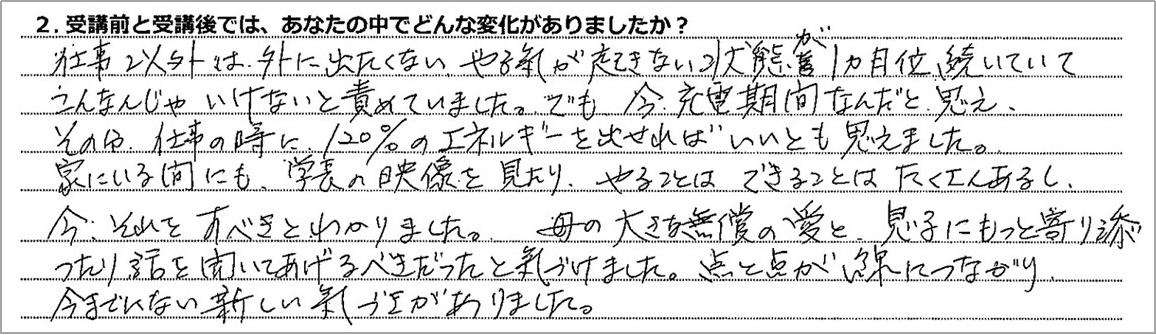 2. 受講前と受講後では、あなたの中でどんな変化がありましたか？
仕事以外は、外に出たくない、やる氣が起きない状態が1カ月位、続いていて
こんなんじゃいけないと責めていました。でも、今、充電期間なんだと思え、
その分、仕事の時に、120%のエネルギーを出せればいいとも思えました。
家にいる間にも、学長の映像を見たり、やることはできることはたくさんあるし、
今、それをすべきとわかりました。 母の大きな無償の愛と、息子にもっと寄り添
ったり話を聞いてあげるべきだったと氣づけました。点と点が線につながり、
今までにない新しい氣づきがありました。